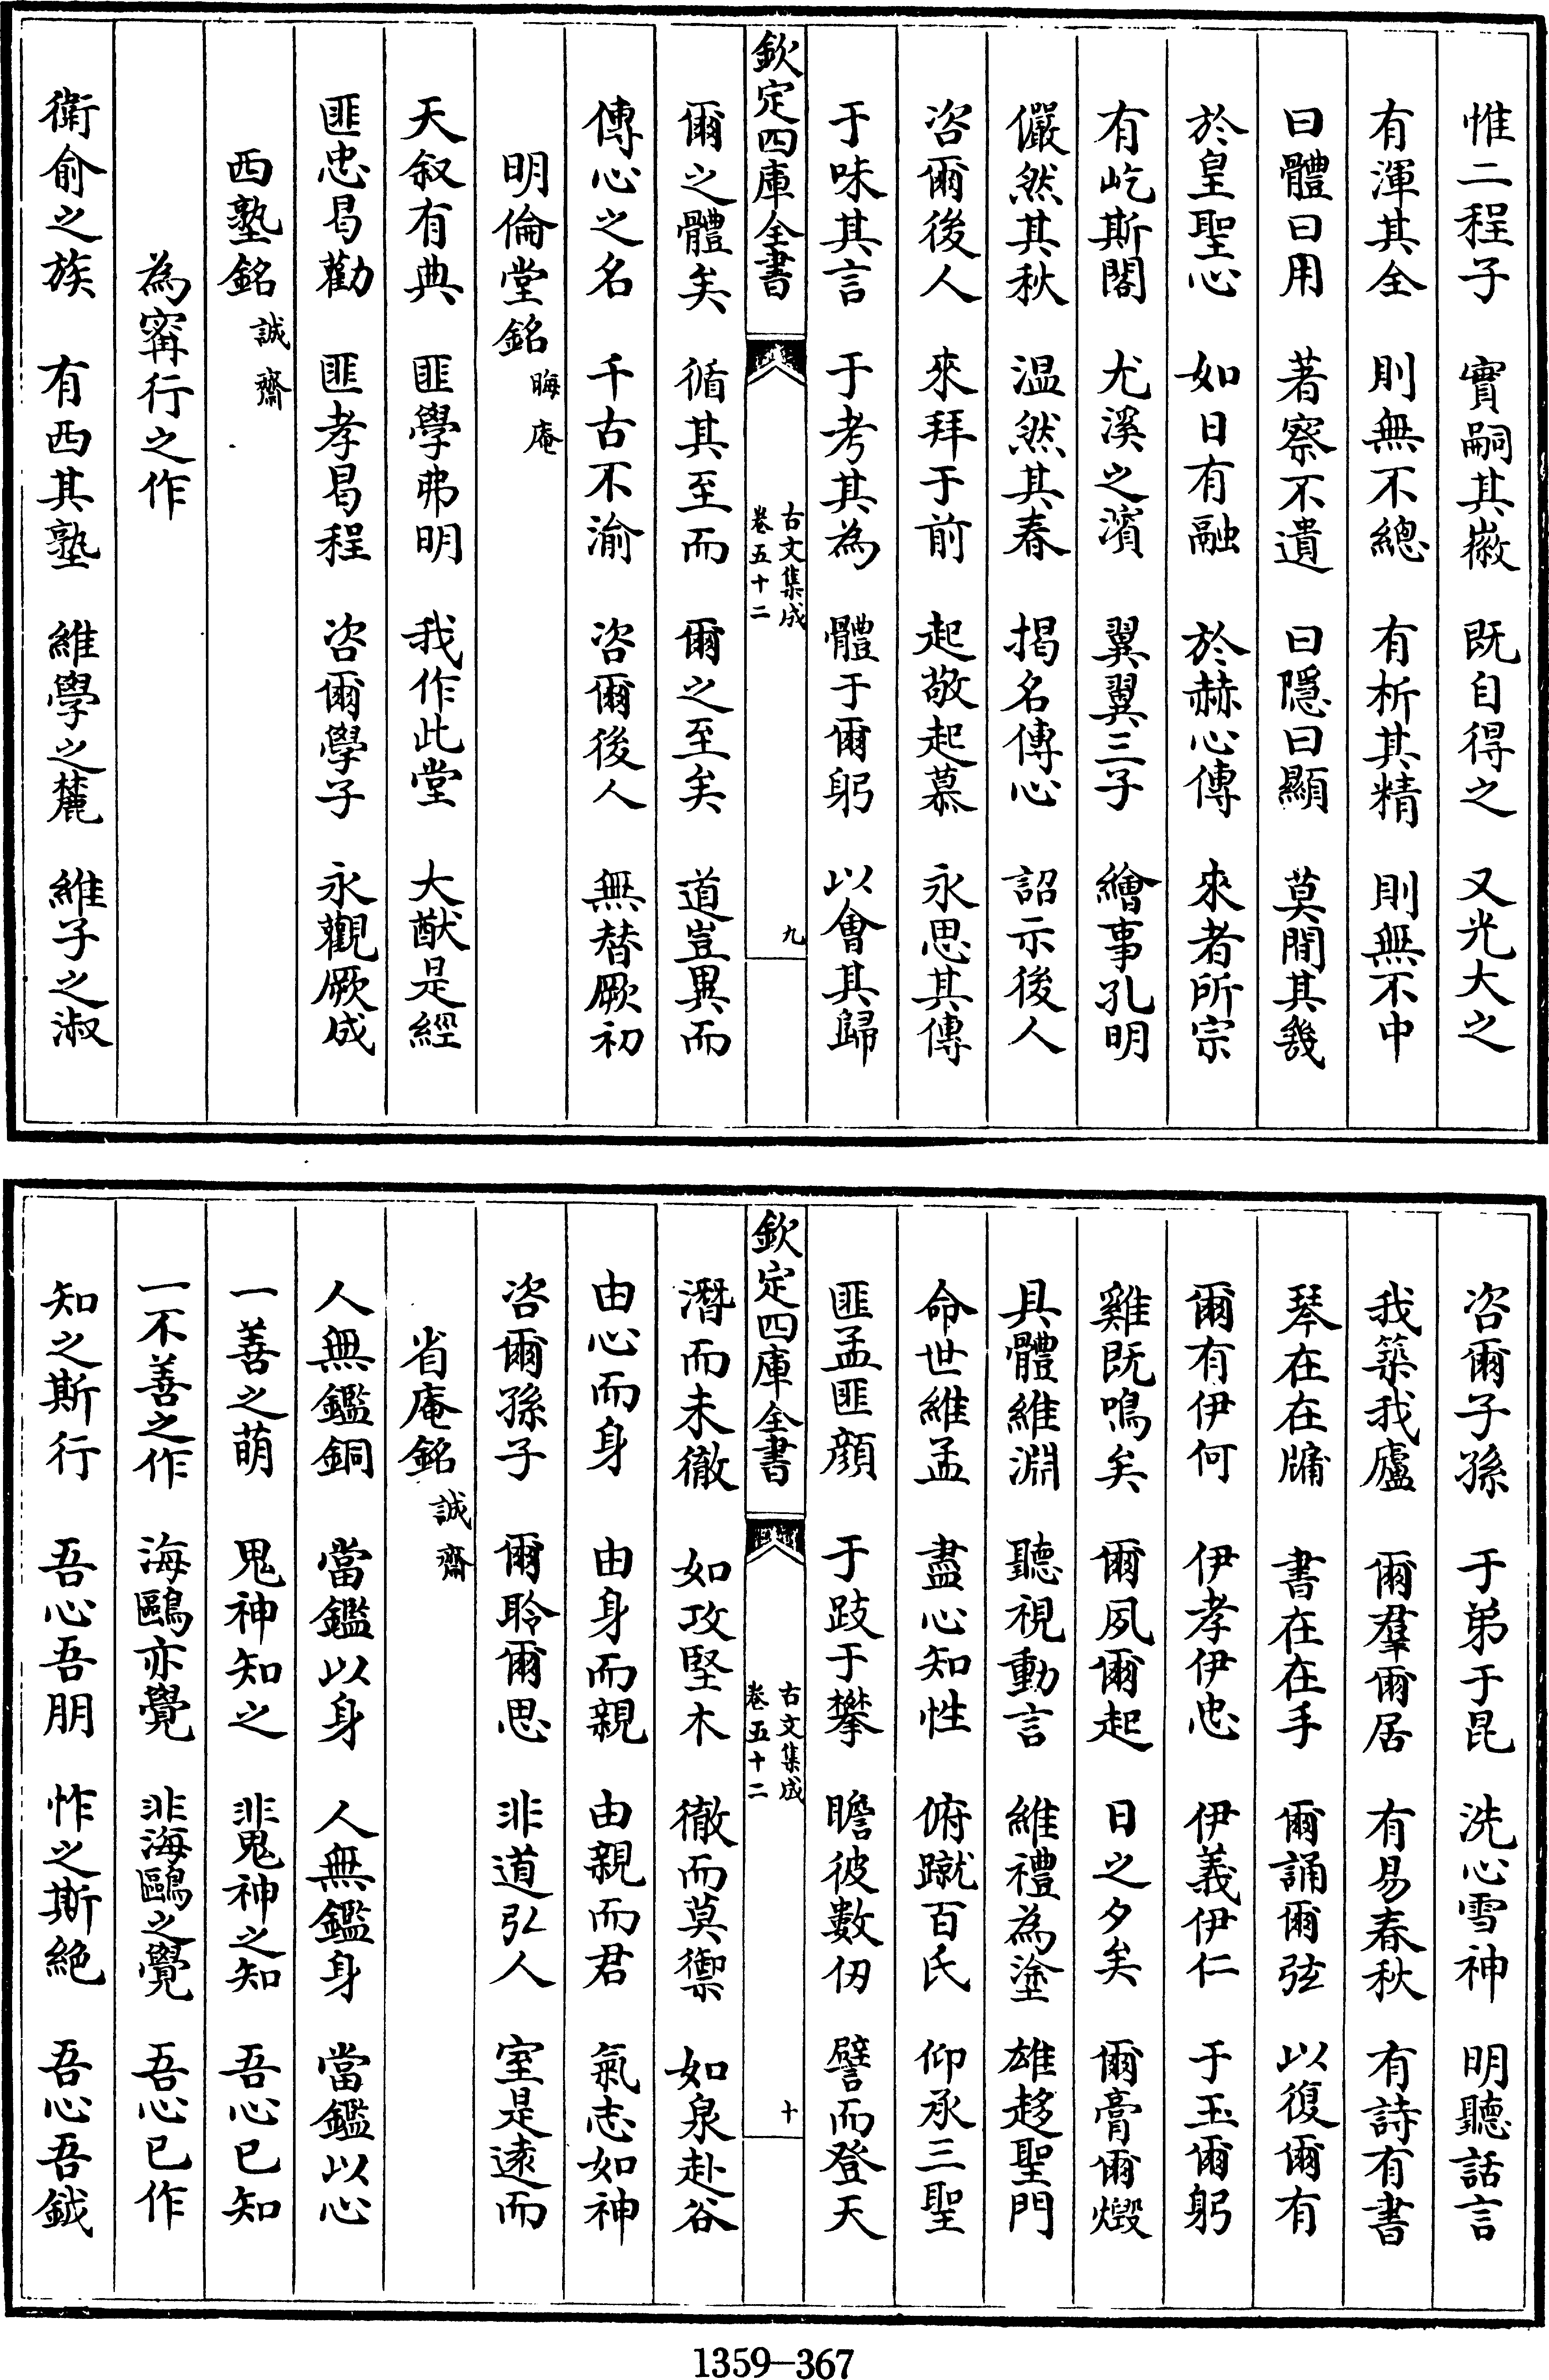 惟二程子　實嗣其徽　既自得之　又光大之
有渾其全　則無不總　有析其精　則無不中
曰體曰用　著察不遺　曰隱曰顯　莫閒其幾
於皇聖心　如日有融　於赫心傳　來者所宗
有屹斯閣　尤溪之濱　翼翼三子　繪事孔明
儼然其秋　温然其春　揭名傳心　詔示後人
咨爾後人　來拜于前　起敬起慕　永思其傳
于味其言　于考其為　體于爾躬　以會其歸
欽定四庫全書　古文集成　卷五十二　九
爾之體矣　循其至而　爾之至矣　道豈異而
傳心之名　千古不渝　咨爾後人　無替厥初
明倫堂銘　晦庵
天叙有典　匪學弗明　我作此堂　大猷是經
匪忠曷勸　匪孝曷程　咨爾學子　永觀厥成
西塾銘　誠齋
為甯行之作
衛俞之族　有西其塾　維學之麓　維子之淑
咨爾子孫　于弟于昆　洗心雪神　明聽話言
我築我廬　爾羣爾居　有易春秋　有詩有書
琴在在牖　書在在手　爾誦爾弦　以復爾有
爾有伊何　伊孝伊忠　伊義伊仁　于玉爾躬
雞既鳴矣　爾夙爾起　日之夕矣　爾膏爾燬
具體維淵　聽視動言　維禮為塗　雄趍聖門
命世維孟　盡心知性　俯蹴百氏　仰承三聖
匪孟匪顔　于跂于攀　瞻彼數仞　譬而登天
欽定四庫全書　古文集成　卷五十二　十
潛而未徹　如攻堅木　徹而莫禦　如泉赴谷
由心而身　由身而親　由親而君　氣志如神
咨爾孫子　爾聆爾思　非道弘人　室是逺而
省庵銘　誠齋
人無鑑銅　當鑑以身　人無鑑身　當鑑以心
一善之萌　鬼神知之　非鬼神之知　吾心已知
一不善之作　海鷗亦覺　非海鷗之覺　吾心已作
知之斯行　吾心吾朋　怍之斯絶　吾心吾鉞
1359-367